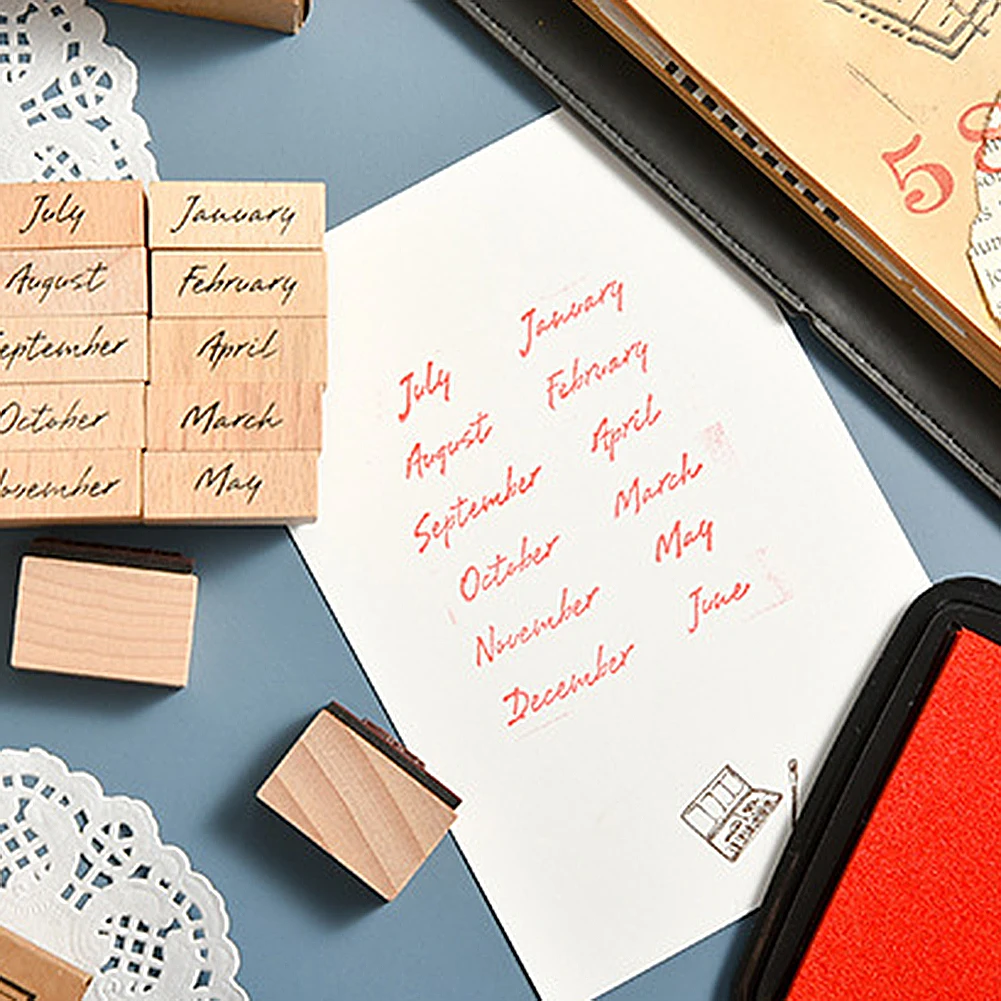 July
January
August
February
eptember
April
October
March
ovember
May
January
February
April
March
May
June
July
August
September
October
November
December
58